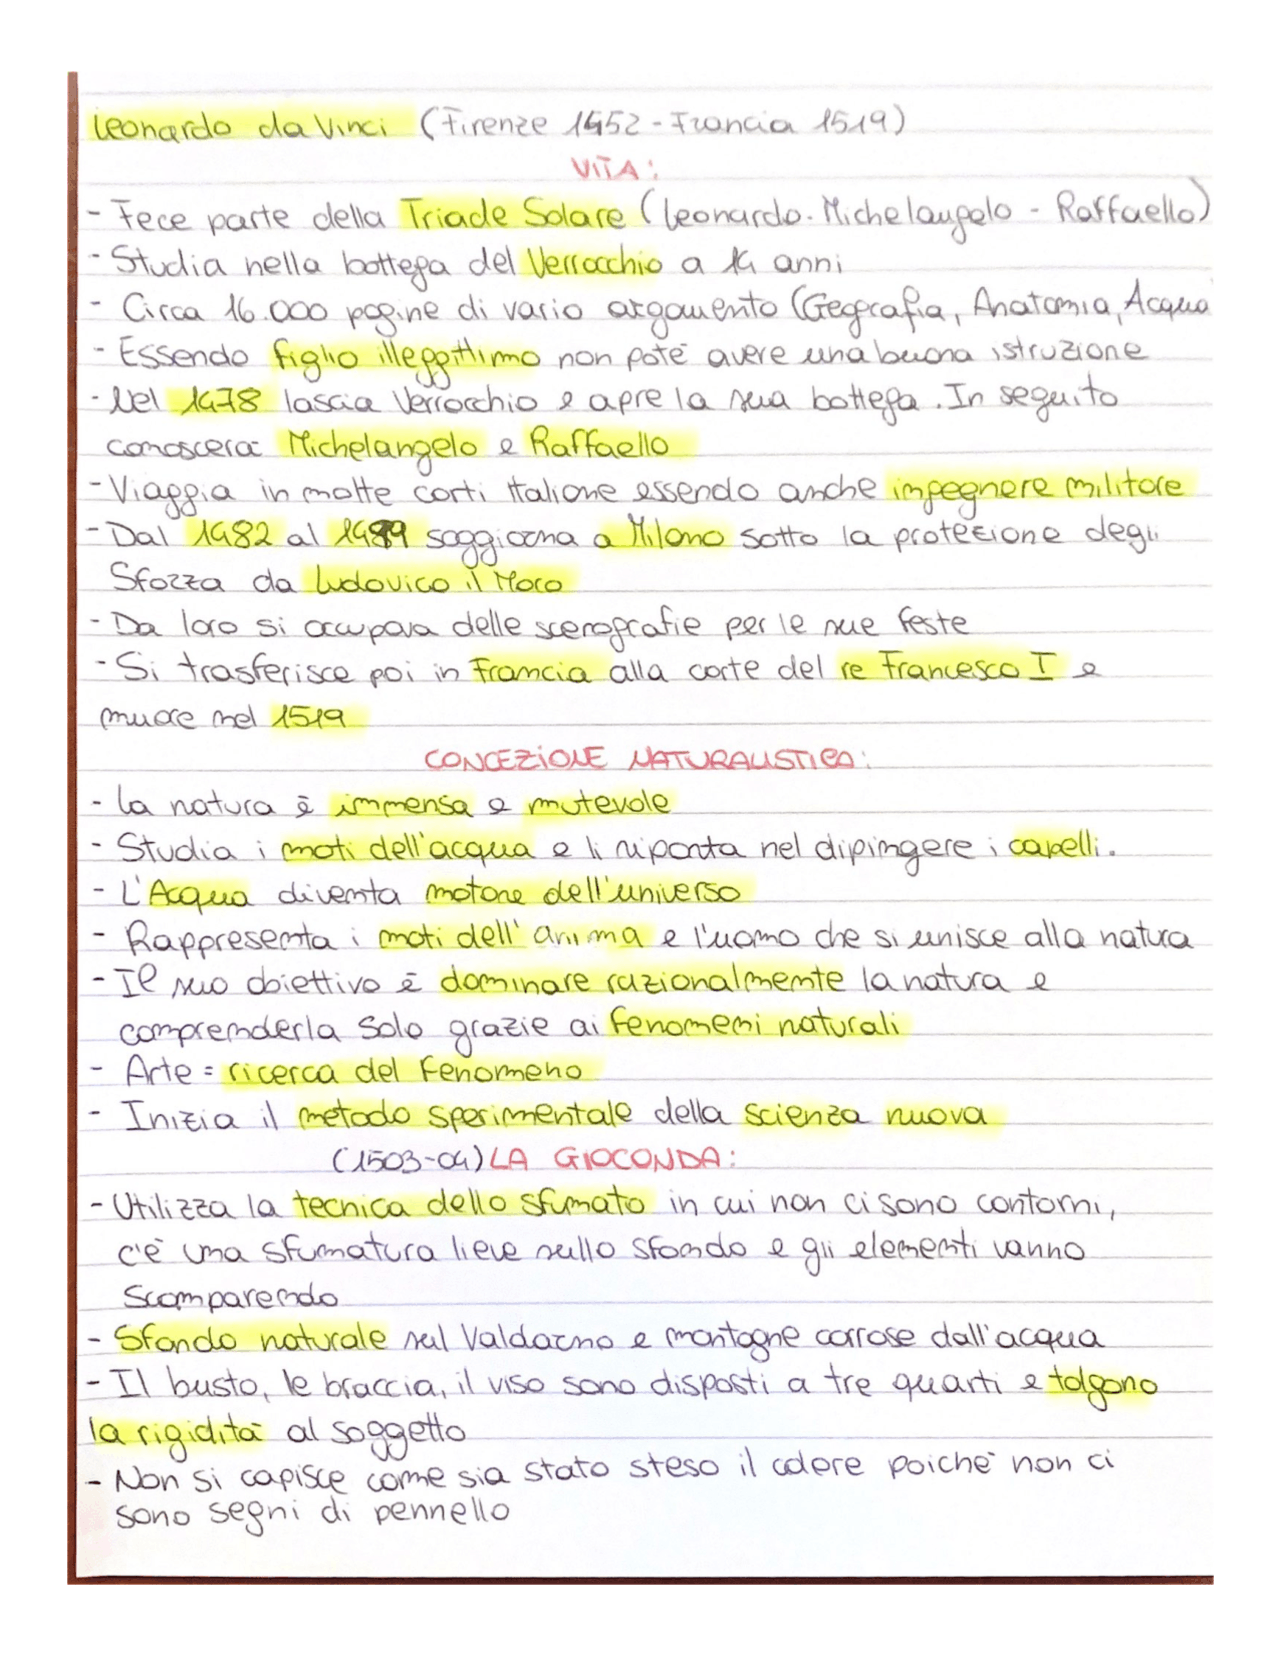 Leonardo da Vinci (Firenze 1452 - Francia 1519)
VITA:
- Fece parte della Triade Solare (Leonardo - Michelangelo - Raffaello)
- Studia nella bottega del Verrocchio a 14 anni
- Circa 16.000 pagine di vario argomento (Geografia, Anatomia, Acqua
- Essendo figlio illegittimo non potè avere una buona istruzione
- Nel 1478 lascia Verrocchio e apre la sua bottega. In seguito
conoscerà Michelangelo e Raffaello
- Viaggia in molte corti italiane essendo anche impegnere militare
- Dal 1482 al 1499 soggiorna a Milano sotto la protezione degli
Sforza da Ludovico il Moro
- Da loro si occupava delle scenografie per le sue feste
- Si trasferisce poi in Francia alla corte del re Francesco I e
muore nel 1519
CONCEZIONE NATURALISTICA:
- La natura è immensa e mutevole
- Studia i moti dell'acqua e li riporta nel dipingere i capelli.
- L'Acqua diventa motore dell'universo
- Rappresenta i moti dell'anima e l'uomo che si unisce alla natura
- Il suo obiettivo è dominare razionalmente la natura e
comprenderla solo grazie ai fenomeni naturali
- Arte = ricerca del fenomeno
- Inizia il metodo sperimentale della scienza nuova
(1503-04) LA GIOCONDA:
- Utilizza la tecnica dello sfumato in cui non ci sono contorni,
c'è una sfumatura lieve sullo sfondo e gli elementi vanno
scomparendo
- Sfondo naturale sul Valdarno e montagne corrose dall'acqua
- Il busto, le braccia, il viso sono disposti a tre quarti e tolgono
la rigidità al soggetto
- Non si capisce come sia stato steso il colore poichè non ci
sono segni di pennello